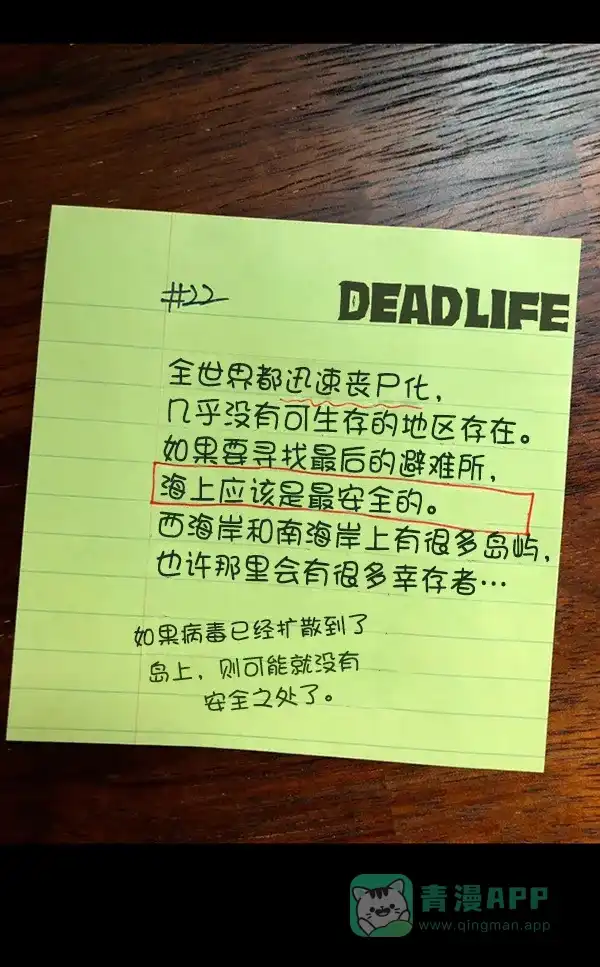 #22
DEADLIFE
全世界都迅速丧尸化，
几乎没有可生存的地区存在。
如果要寻找最后的避难所，
海上应该是最安全的。
西海岸和南海岸上有很多岛屿，
也许那里会有很多幸存者…
如果病毒已经扩散到了
岛上，则可能就没有
安全之处了。
青漫APP
www.qingman.app